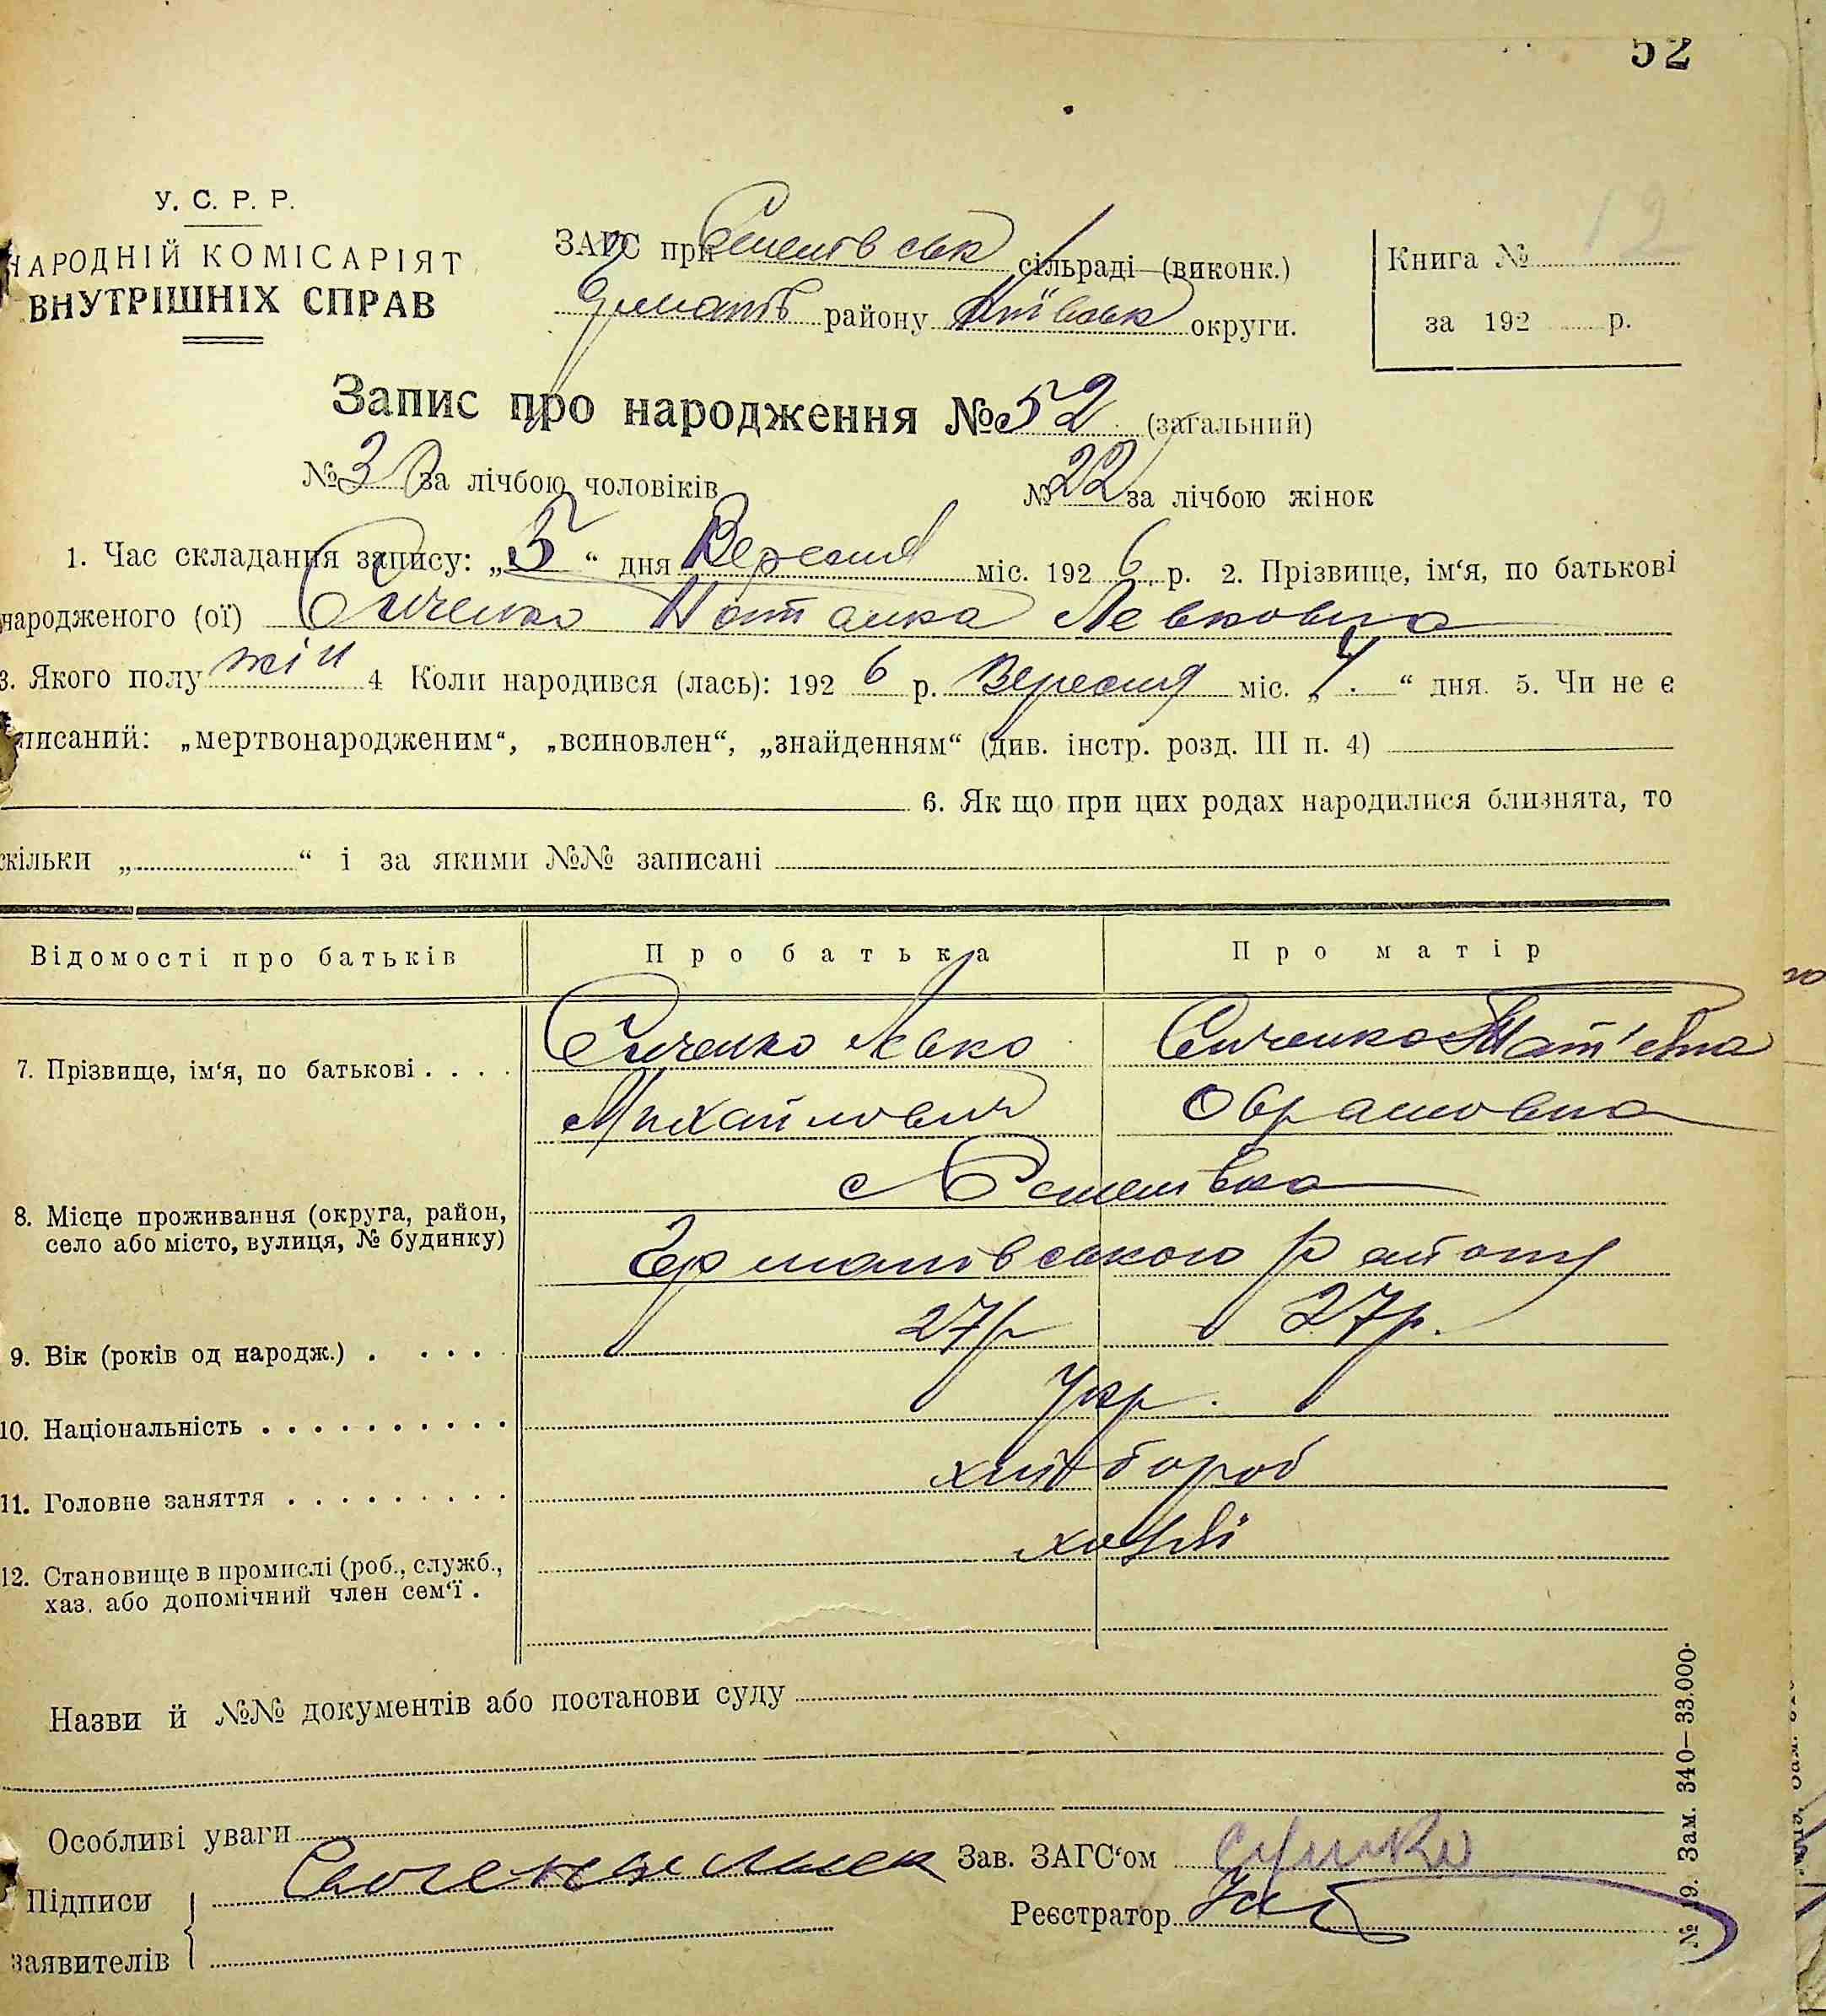 52
У. С. Р. Р.
НАРОДНІЙ КОМІСАРІЯТ
ВНУТРІШНІХ СПРАВ
ЗАГС при сільраді (виконк.)
району Київськ округи.
Книга № 12
за 192 р.
Запис про народження № 52 (загальний)
№ 30 за лічбою чоловіків № 22 за лічбою жінок
1. Час складання запису: „5“ дня Вересня міс. 192 6 р. 2. Прізвище, ім‘я, по батькові
народженого (ої) Наталка Левковна
3. Якого полу жін 4 Коли народився (лась): 192 6 р. Вересня міс. „4.“ дня. 5. Чи не є
записаний: „мертвонародженим“, „всиновлен“, „знайденням“ (див. інстр. розд. III п. 4)
6. Як що при цих родах народилися близнята, то
скільки „ “ і за якими №№ записані
Відомості про батьків Про батька Про матір
7. Прізвище, ім‘я, по батькові . . . .
Левко
Михайлович Оврамовна
8. Місце проживання (округа, район,
село або місто, вулиця, № будинку)
с
району
9. Вік (років од народж.) . . . . 27р 27р.
10. Національність . . . . . . . . . . Укр.
11. Головне заняття . . . . . . . . . хлібороб
12. Становище в промислі (роб., служб.,
хаз. або допомічний член сем‘ї .
Назви й №№ документів або постанови суду
Особливі уваги
Підписи
заявителів
Зав. ЗАГС‘ом
Реєстратор
№ 19. Зам. 340—33.000.